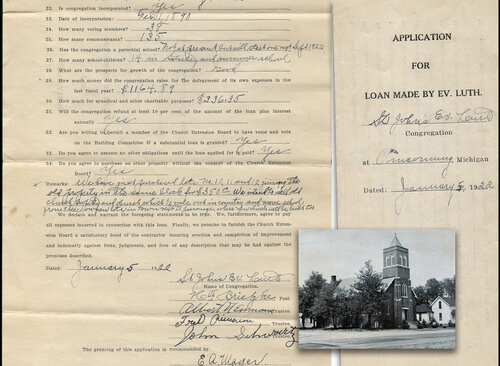 22. Is congregation incorporated? Yes
23. Date of incorporation: 1890
24. How many voting members? 38
25. How many communicants? 135
26. Has the congregation a parochial school? Not at present but will start one next Sept 1922
27. How many school-children? 14 in Saturday and summer school
28. What are the prospects for growth of the congregation? Good
29. How much money did the congregation raise for the defrayment of its own expenses in the
last fiscal year? $1164.89
30. How much for synodical and other charitable purposes? $236.25
31. Will the congregation refund at least 10 per cent of the amount of the loan plus interest
annually Yes
32. Are you willing to permit a member of the Church Extension Board to have voice and vote
on the Building Committee if a substantial loan is granted? Yes
33. Do you agree to assume no other obligations until the loan applied for is paid? Yes
34. Do you agree to purchase no other property without the consent of the Church Extension
Board? Yes
Remarks: We have purchased lots No 10, 11 and 12 joining the
old property in the same block for $350.00. We intend to sell old
church and which is mile out in country and move school
We declare and warrant the foregoing statements to be true. We, furthermore, agree to pay
all expenses incurred in connection with this loan. Finally, we promise to furnish the Church Extension
Board a satisfactory bond of the contractor insuring erection and completion of improvement
and indemnity against liens, judgments, and fees of any description that may be had against the
premises described.
Dated: January 5 1922
St Johns Ev Luth
Name of Congregation.
Past.
Albert Trustee
Fred Trustee
John
The granting of this application is recommended by
APPLICATION
FOR
LOAN MADE BY EV. LUTH.
St Johns Ev. Luth
Congregation
at Pinconning Michigan
Dated: January 5, 1922